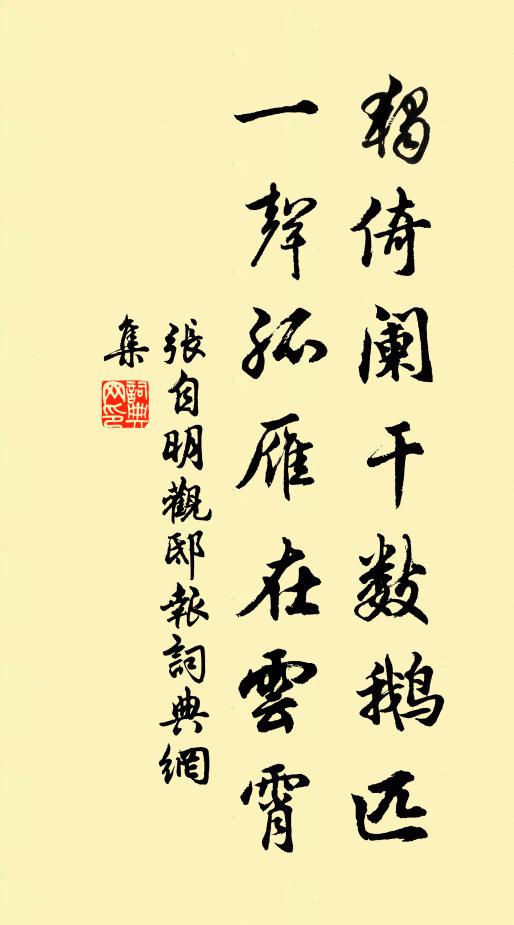 獨倚阑干数鹅匹
一聲孤雁在雲霄
張自明觀邸報詞典網
集
詞典
网印